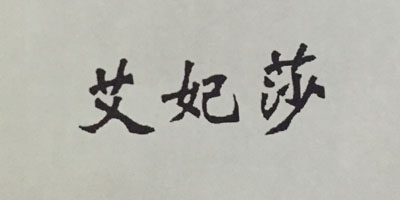 艾妃莎